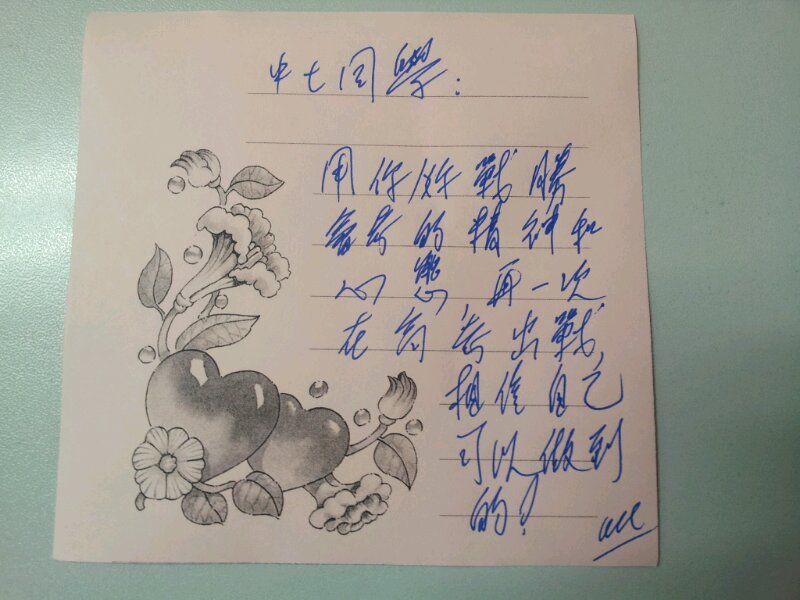 中七同學:
用你於戰勝
會考的精神和
心態,再一次
在高考出戰,
相信自己
可以做到
的!